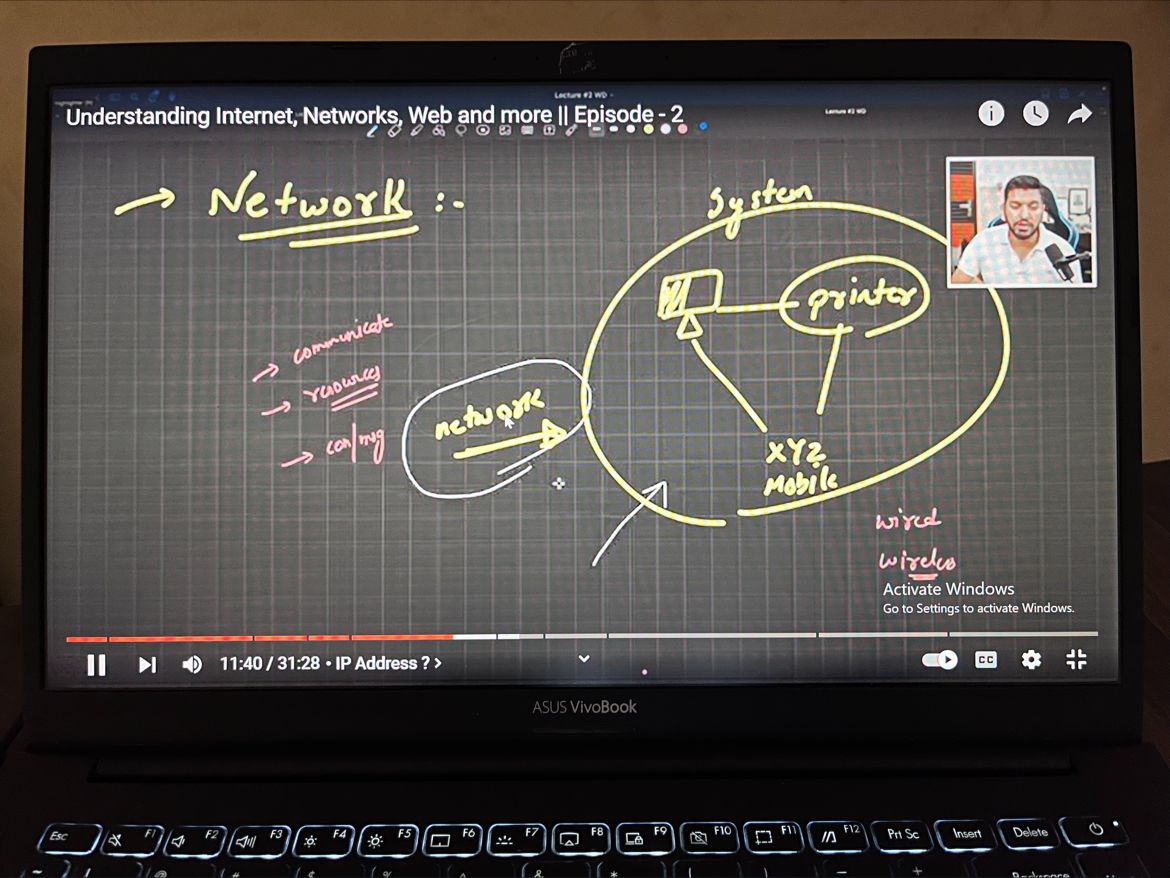 Lecture #2 WD
Understanding Internet, Networks, Web and more || Episode - 2
Lecture #2 WD
→ Network :-
System
printer
→ communicate
→ resources
→ con/msg
network
XYZ
Mobile
wired
wireless
Activate Windows
Go to Settings to activate Windows.
11:40 / 31:28 • IP Address ? >
CC
ASUS VivoBook
Esc F1 F2 F3 F4 F5 F6 F7 F8 F9 F10 F11 F12 Prt Sc Insert Delete
~ ! @ # $ % ^ & * ( ) _ + Backspace